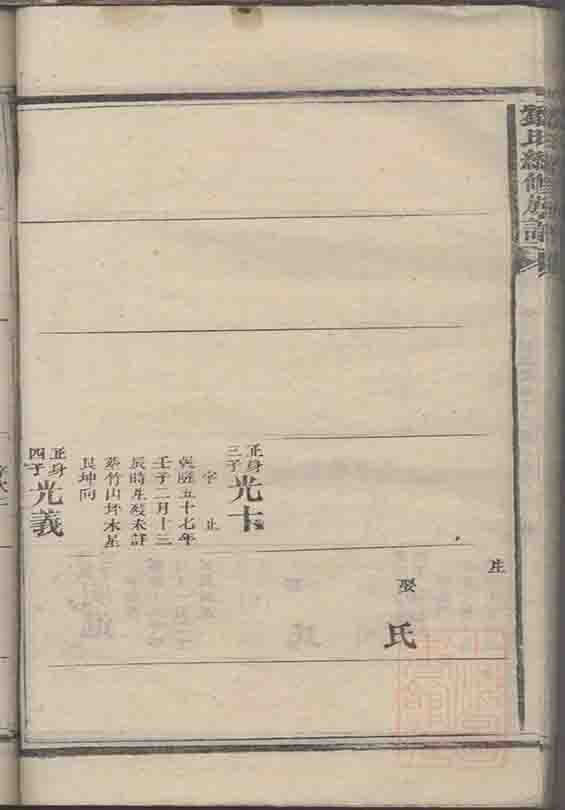 鄧氏續修族譜
生
娶
氏
正身
三子
光士
字止
乾隆五十七年
壬子二月十三
辰時生歿未詳
葬竹山坪木星
艮坤向
正身
四子
光義